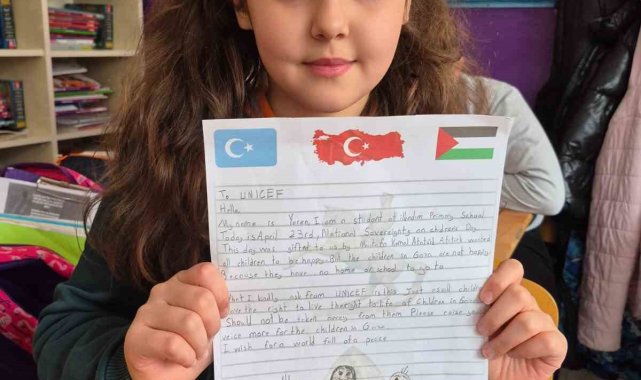 To UNICEF
Hello,
My name is Yaren, I am a student at İbrahim Primary School
Today is April 23rd, National Sovereignty on children's Day
This day was gifted to us by Mustafa Kemal Atatürk. Atatürk wanted
all children to be happy. But the children in Gaza are not happy
Because they have no home or school to go to.
What I kindly ask from UNICEF is this Just as all children
have the right to live the right to life of children in Gaza
Should not be taken away from them Please raise your
voice more for the children in Gaza
I wish for a world full of a peace